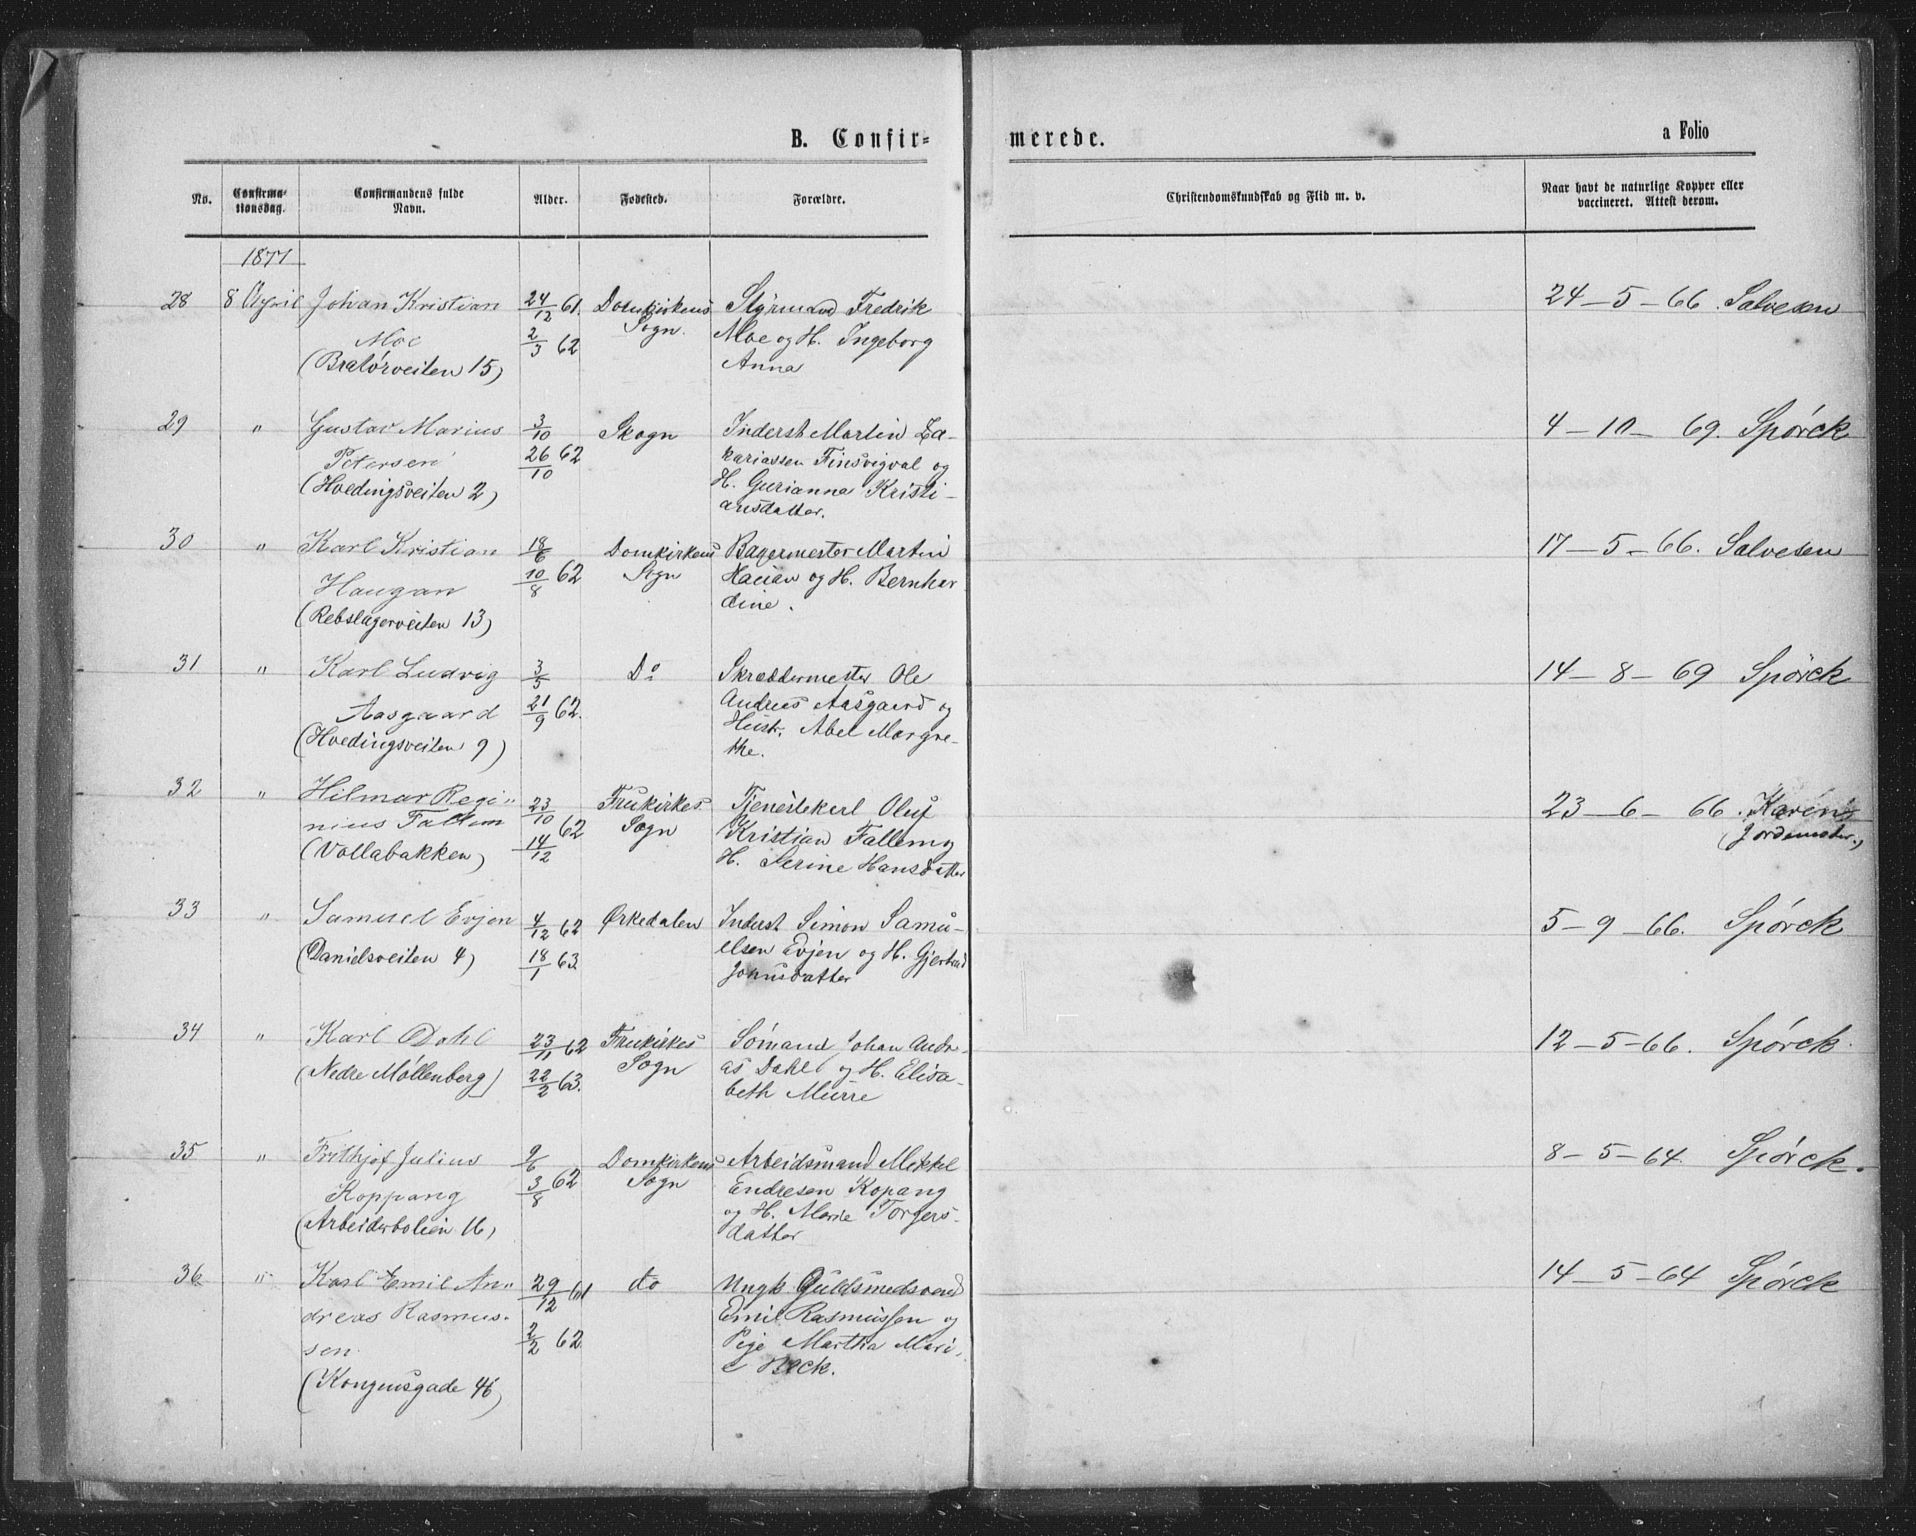 B. Confir-
merede.
a Folio
No.
Confirma-
tionsdag.
Confirmandens fulde
Navn.
Alder.
Fødested.
Forældre.
Christendomskundskab og Flid m. v.
Naar havt de naturlige Kopper eller
vaccineret. Attest derom.
1877
28 8 April Johan Kristian 24/12 61. Domkirkens Styrmand Fredrik 24-5-66. Salvesen
Moe 2/3 62 Sogn. Moe og H. Ingeborg
(Bratørveiten 15) Anna
29 " Gustav Marius 3/10 Skogn Inderst Martin Za- 4-10-69. Spörck
Petersen 26/10 62 kariassen Finsvigval og
(Hvedingsveiten 2) H. Gurianna Kristi-
ansdatter.
30 " Karl Kristian 18/6 Domkirkens Bagermester Martin 17-5-66. Salvesen
Haugan 10/8 62 Sogn og H. Bernhar
(Rebslagerveiten 13) dine.
31 " Karl Ludvig 3/5 Do Skræddermester Ole 14-8-69 Spörck
Aasgaard 21/9 62. Andreas Aasgaard og
(Hvedingsveiten 9) Hust. Abel Margre-
the.
32 " Hilmar Regi- 23/10 Frukirkes Tjenestekarl Oluf 23-6-66. Karen
nius Fallem 62 Sogn Kristian Fallem og (Jordemoder.)
(Vollabakken) 14/12 H. Serine Hansdatter
33 " Samuel Evjen 4/12 62 Ørkedalen Inderst Simon Samu- 5-9-66. Spörck
(Danielsveiten 4) 18/1 63. elsen Evjen og H. Gjertrud
Jonusdatter
34 " Karl Dahl 23/11 62 Frukirkes Sømand Johan Andr- 12-5-66. Spörck.
(Nedre Møllenberg) 22/2 63. Sogn as Dahl og H. Elisa-
beth Murre
35 " Frithjof Julius 9/6 Domkirkens Arbeidsmand Mekkel 8-5-64. Spörck.
Koppang 3/8 62 Sogn Endresen Kopang
(Arbeiderboligen 16) og H. Marie Torgers-
datter
36 " Karl Emil An- 29/12 61 do Ungk Guldsmedsvend 14-5-64 Spörck
dreas Rasmus- Emil Rasmussen og
sen 2/2 62. Pige Martha Mari-
(Kongensgade 46) e Beck.